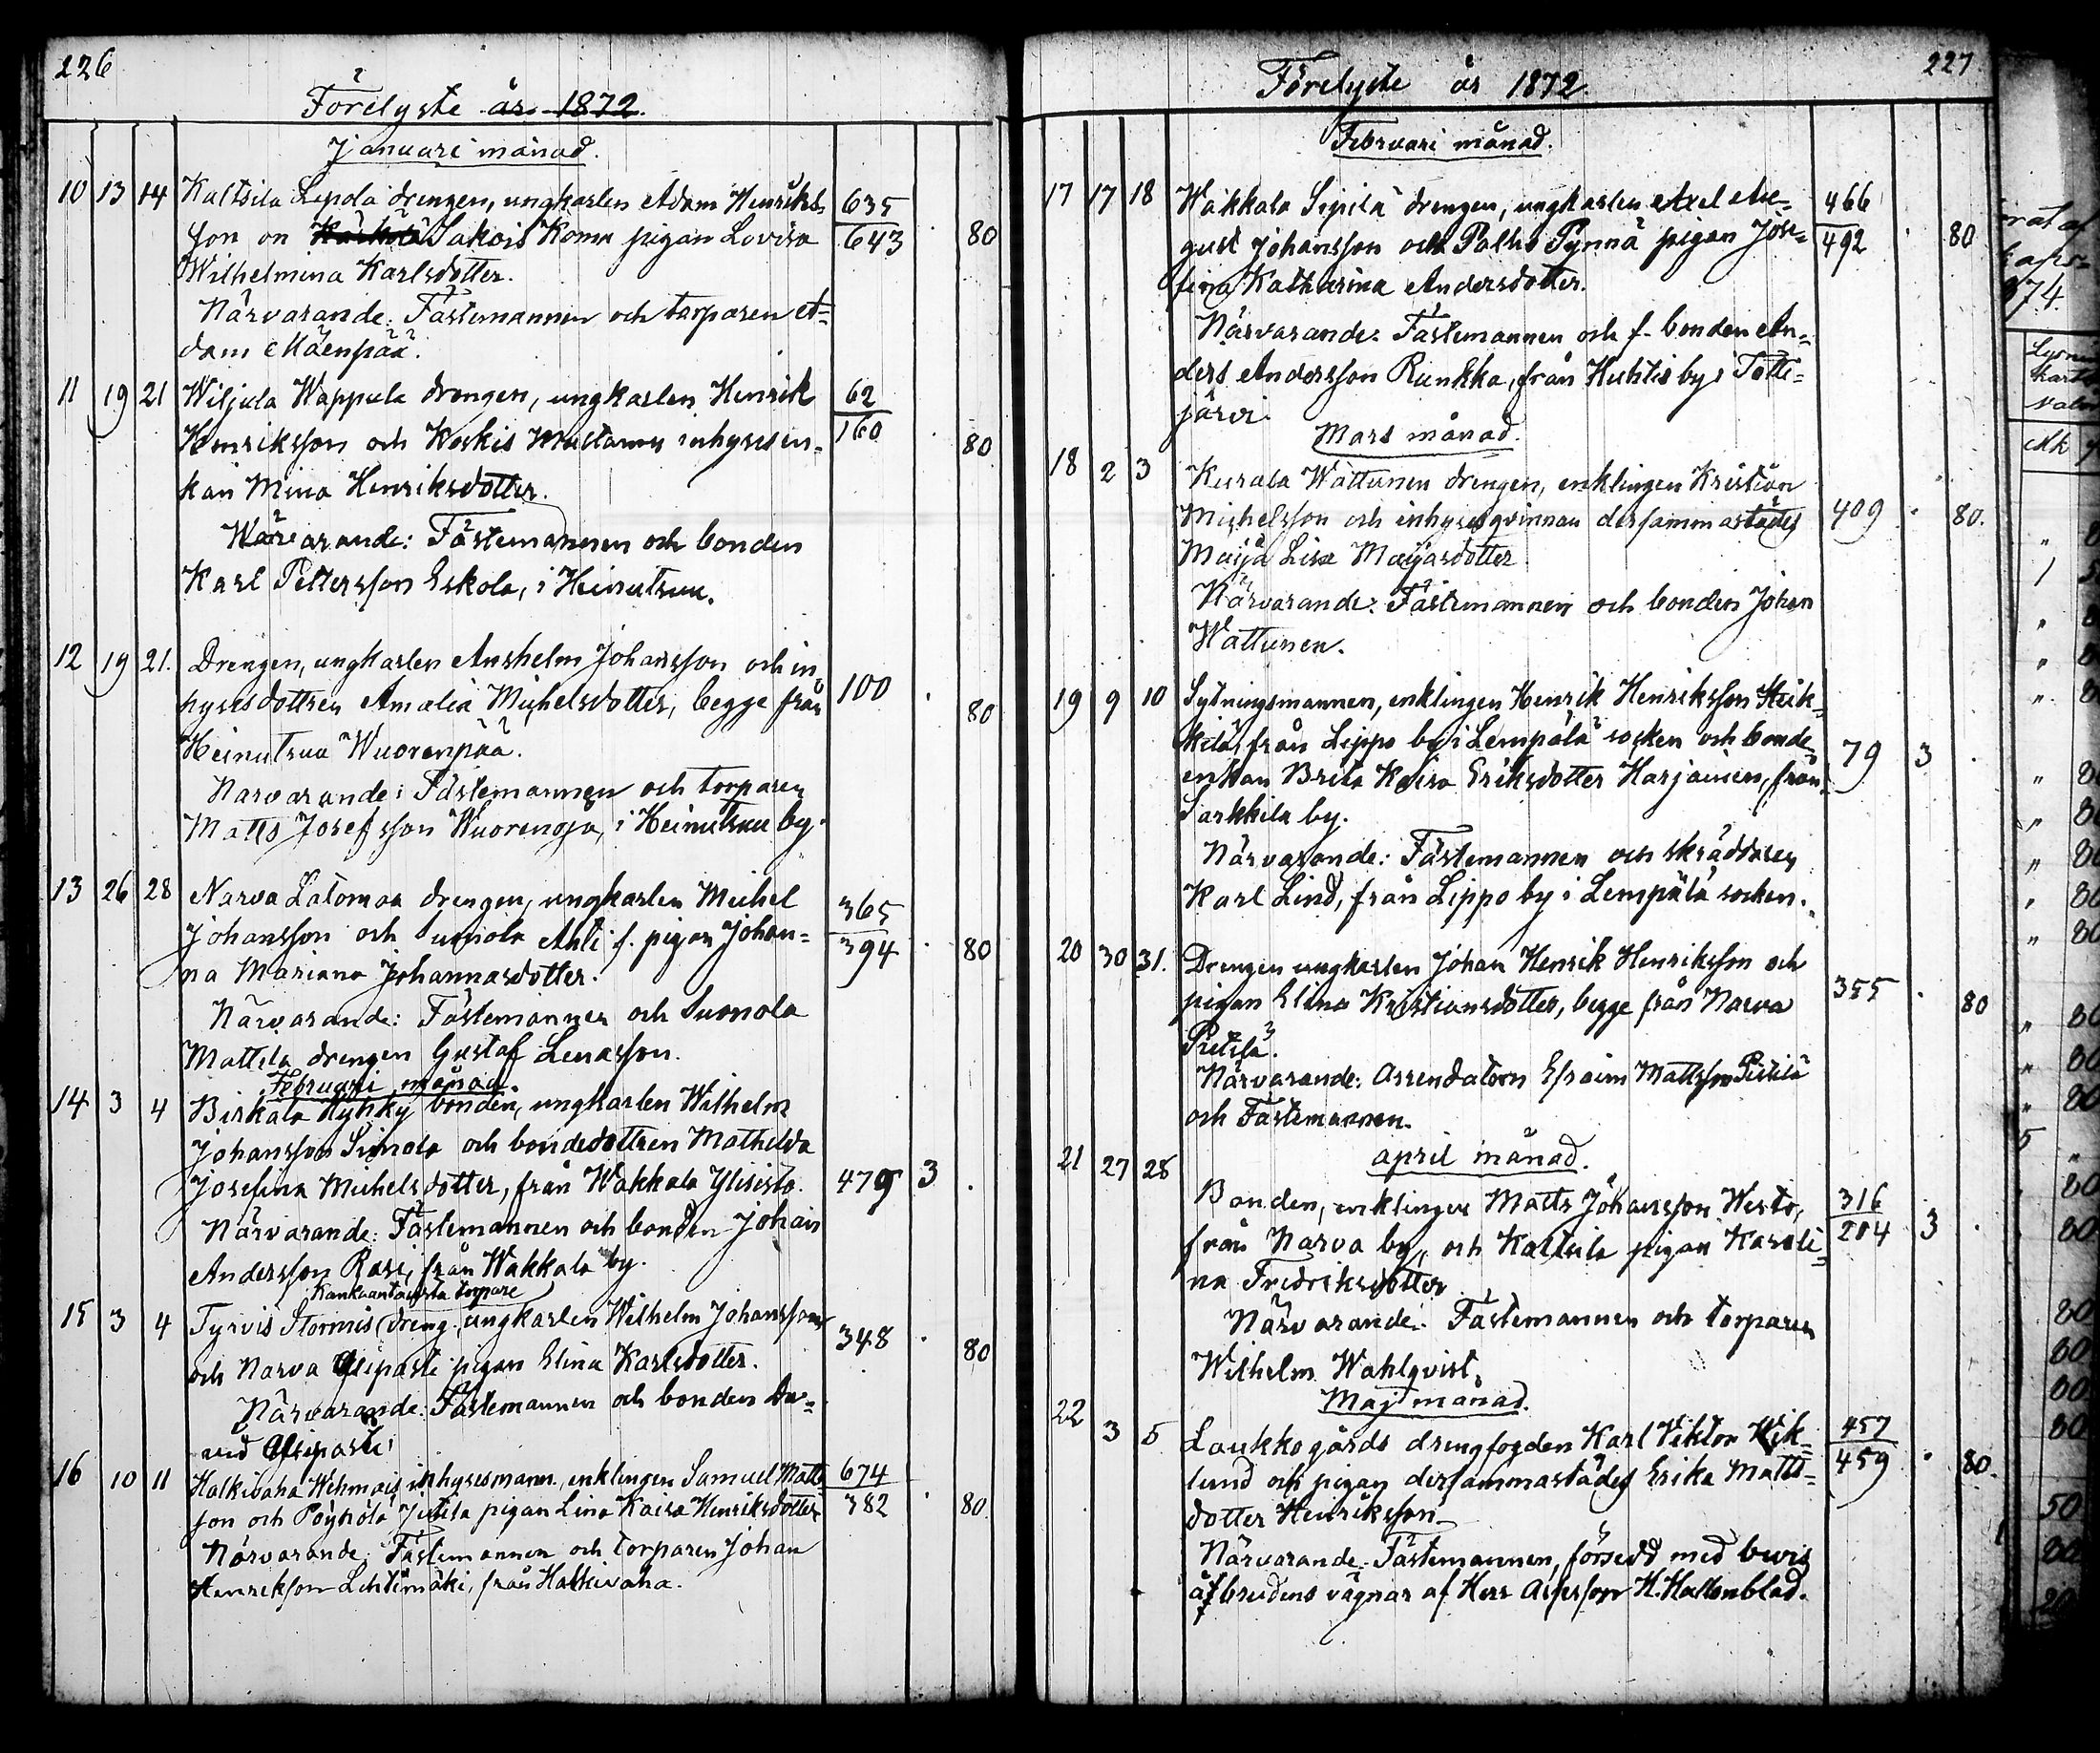 226
Förelyste år 1872.
Januari månad.
10 13 14 Kaltsila Lepola drengen, ungkarlen Adam Henriks- 635
son on Sakois Koma pigan Lovisa 643 . 80
Wilhelmina Karlsdotter.
Närvarande: Fästemannen och torparen A=
dam Mäenpää.
11 19 21 Wiljula Wappula drengen, ungkarlen Henrik 62
Henriksson och Koskis Mustanu inhysesen- 160 . 80
kan Mina Henriksdotter.
Närvarande: Fästemannen och bonden
Karl Pettersson Eskola, i Heinutsuu.
12 19 21. Drengen, ungkarlen Anshelm Johansson och in-
hysesdottren Amalia Michelsdotter, begge från 100 . 80
Heinutsuu Wuorenpää.
Närvarande: Fästemannen och torparen
Matts Josefsson Wuorenoja, i Heinutsuu by.
13 26 28 Narva Latomaa drengen, ungkarlen Michel 365
Johansson och Suonola Anti f. pigan Johan= 394 . 80
na Mariana Johannasdotter.
Närvarande: Fästemannen och Suonola
Mattila drengen Gustaf Lenasson.
Februari månad.
14 3 4 Birkala Hyhky bonden, ungkarlen Wilhelm
Johansson Simola och bondedottren Mathilda
Josefina Michelsdotter, från Wakkala Ylisisto. 479 3 .
Närvarande: Fästemannen och bonden Johan
Andersson Rasi, från Wakkala by.
Kankaantausta torpare
15 3 4 Tyrvis Stormis (dreng., ungkarlen Wilhelm Johansson 348 . 80
och Narva Alipasti pigan Elina Karlsdotter.
Närvarande: Fästemannen och bonden Da=
vid Alipasti
16 10 11 Halkivaha Wehmais inhysesmann, enklingen Samuel Matts 674
son och Pöyhölä Jutila pigan Lina Kaisa Henriksdotter 382 . 80
Närvarande: Fästemannen och torparen Johan
Henriksson Lehtimäki, från Halkivaha.
227
Förelyste år 1872
Februari månad.
17 17 18 Wakkala Sipilä drengen, ungkarlen Axel Au= 466
gust Johansson och Palho Pynnä pigan Jose= 492 . 80
fina Katharina Andersdotter.
Närvarande: Fästemannen och f. bonden An=
ders Andersson Runkka, från Huhtis by i Totti=
järvi.
Mars månad.
18 2 3 Kurala Wattunen drengen, enklingen Kristian
Michelsson och inhysesqvinnan dersammastädes 409 . 80.
Maija Lisa Maijasdotter
Närvarande: Fästemannen och bonden Johan
Wattunen.
19 9 10 Sytningsmannen, enklingen Henrik Henriksson Heik-
kilä, från Lippo by i Lempälä socken och bonde- 79 3 .
enkan Brita Kaisa Eriksdotter Harjainen, från
Sarkkila by.
Närvarande: Fästemannen och skräddaren
Karl Lind, från Lippo by i Lempälä socken.
20 30 31. Drengen ungkarlen Johan Henrik Henriksson och
pigan Elina Kristiansdotter, begge från Narva 355 . 80
Pietilä.
Närvarande: Arrendatorn Efraim Mattsson Pietilä
och Fästemannen.
april månad.
21 27 28
Bonden, enklingen Matts Johansson Westo, 316
från Narva by, och Kaltsila pigan Karoli= 204 3 .
na Fredriksdotter
Närvarande: Fästemannen och torparen
Wilhelm Wahlqvist.
Maj månad.
22 3 5 Laukko gårds drengfogden Karl Viktor Wik= 457
lund och pigan dersammastädes Erika Matts= 459 . 80.
dotter Henriksson
Närvarande: Fästemannen, försedd med bevis
åf brudens vägnar af Herr Assessor H. Hallonblad.